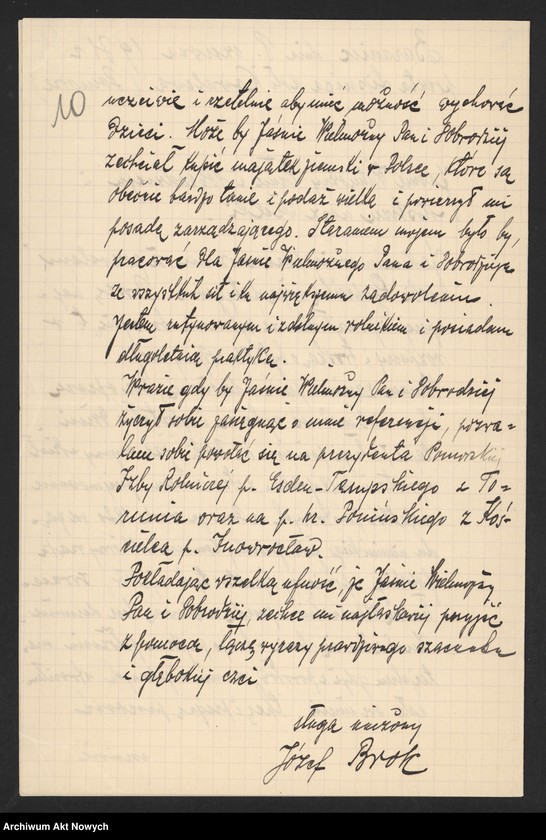 10
uczciwie i rzetelnie aby mieć możność wychować
dzieci. Może by Jaśnie Wielmożny Pan i Dobrodziej
zechciał kupić majątek ziemski w Polsce, które są
obecnie bardzo tanie i podaż wielka i powierzył mi
posadę zarządzającego. Staraniem mojem było by,
pracować dla Jaśnie Wielmożnego Pana i Dobrodzieja
ze wszystkich sił i ku największemu zadowoleniu.
Jestem rutynowanym i zdolnym rolnikiem i posiadam
długoletnią praktykę.
W razie gdy by Jaśnie Wielmożny Pan i Dobrodziej
życzył sobie zasięgnąć o mnie referencji, pozwa-
lam sobie powołać się na prezydenta Pomorskiej
Izby Rolniczej p. Esden-Tempskiego z To-
runia oraz na p. hr. Ponińskiego z Koś-
cielca p. Inowrocław.
Pokładając wszelką ufność, że Jaśnie Wielmożny
Pan i Dobrodziej, zechce mi najłaskawiej przyjść
z pomocą, łączę wyrazy prawdziwego szacunku
i głębokiej czci
sługa uniżony
Józef Brok
Archiwum Akt Nowych